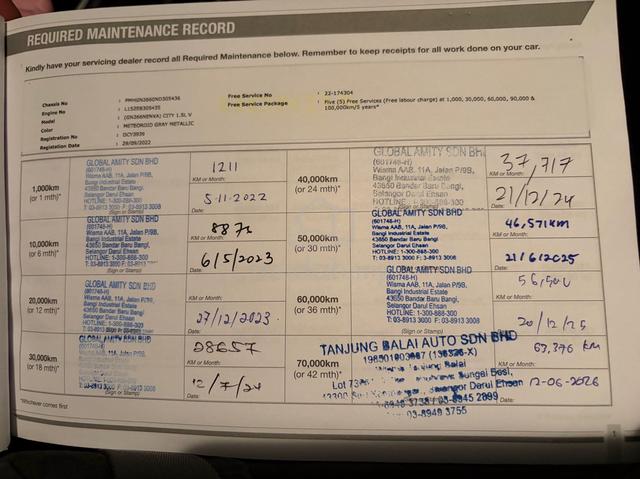 REQUIRED MAINTENANCE RECORD
Kindly have your servicing dealer record all Required Maintenance below. Remember to keep receipts for all work done on your car.
Free Service No : 22-174304
Free Service Package : Five (5) Free Services (Free labour charge) at 1,000, 30,000, 60,000, 90,000 & 100,000km/5 years*
Chassis No
Engine No
Model : (GN366NENVA) CITY 1.5L V
Color : METEOROID GRAY METALLIC
Registration No
Registration Date : 29/09/2022
1,000km
(or 1 mth)*
GLOBAL AMITY SDN BHD
(601748-H)
Wisma AAB, 11A, Jalan P/9B,
Bangi Industrial Estate
43650 Bandar Baru Bangi,
Selangor Darul Ehsan
HOTLINE: 1-300-888-300
(Sign or Stamp)
1211
KM or Month:
5-11-2022
Date:
40,000km
(or 24 mth)*
GLOBAL AMITY SDN BHD
(601748-H)
Wisma AAB, 11A, Jalan P/9B,
Bangi Industrial Estate
43650 Bandar Baru Bangi,
Selangor Darul Ehsan
(Sign or Stamp)
37,717
KM or Month:
21/12/24
Date:
10,000km
(or 6 mth)*
GLOBAL AMITY SDN BHD
(601748-H)
Wisma AAB, 11A, Jalan P/9B,
Bangi Industrial Estate
43650 Bandar Baru Bangi,
Selangor Darul Ehsan
HOTLINE: 1-300-888-300
(Sign or Stamp)
KM or Month:
6/5/2023
Date:
50,000km
(or 30 mth)*
GLOBAL AMITY SDN BHD
(601748-H)
Wisma AAB, 11A, Jalan P/9B,
Bangi Industrial Estate
43650 Bandar Baru Bangi,
Selangor Darul Ehsan
HOTLINE: 1-300-888-300
T: 03-8913 3000 F: 03-8913 3008
46,571KM
KM or Month:
21/6/2025
Date:
20,000km
(or 12 mth)*
GLOBAL AMITY SDN BHD
(601748-H)
Wisma AAB, 11A, Jalan P/9B,
Bangi Industrial Estate
43650 Bandar Baru Bangi,
Selangor Darul Ehsan
HOTLINE: 1-300-888-300
(Sign or Stamp)
KM or Month:
27/12/2023
Date:
60,000km
(or 36 mth)*
GLOBAL AMITY SDN BHD
(601748-H)
Wisma AAB, 11A, Jalan P/9B,
Bangi Industrial Estate
43650 Bandar Baru Bangi,
Selangor Darul Ehsan
HOTLINE: 1-300-888-300
T: 03-8913 3000 F: 03-8913 3008
KM or Month:
20/12/25
Date:
30,000km
(or 18 mth)*
GLOBAL AMITY SDN BHD
Wisma AAB, 11A, Jalan P/9B,
(Sign or Stamp)
28657
KM or Month:
12/7/24
Date:
70,000km
(or 42 mth)*
TANJUNG BALAI AUTO SDN BHD
Tanjung Balai
Sungai Besi,
Selangor Darul Ehsan
03-8949 3755
KM or Month:
12-06-2026
Date:
*Whichever comes first
1